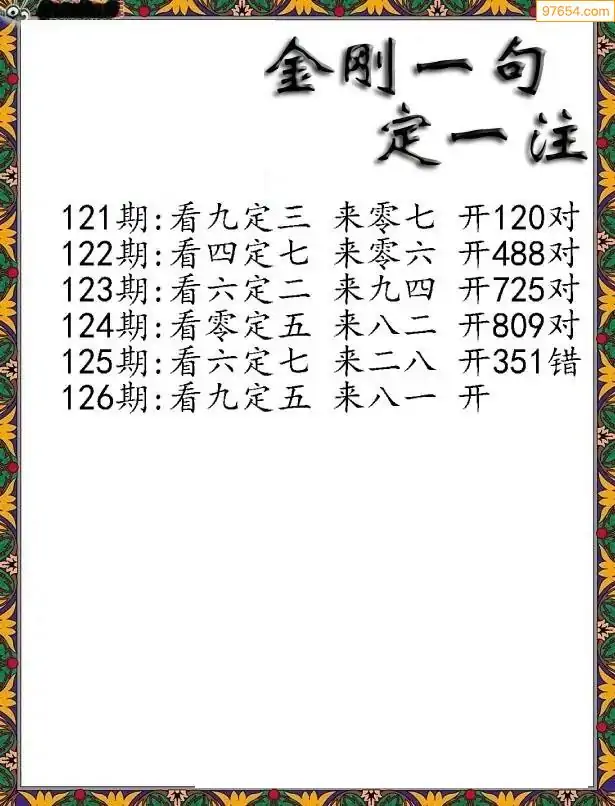 97654.com
金刚一句
定一注
121期:看九定三 来零七 开120对
122期:看四定七 来零六 开488对
123期:看六定二 来九四 开725对
124期:看零定五 来八二 开809对
125期:看六定七 来二八 开351错
126期:看九定五 来八一 开